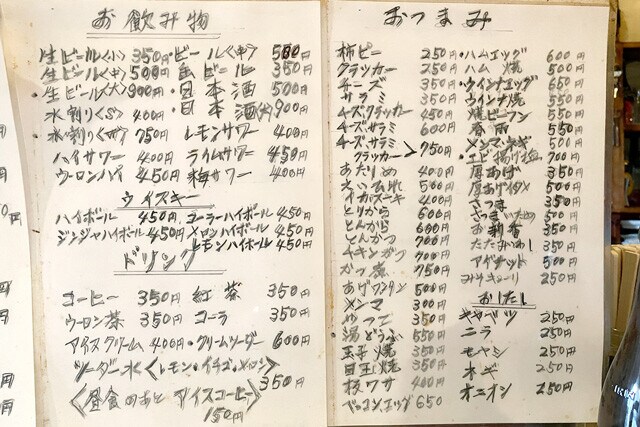 お飲み物
生ビール<小> 350円・ビール<中> 500円
生ビール<中> 500円 缶ビール 350円
・生ビール<大> 900円・日本酒 500円
水割り<S> 400円・日本酒<大> 900円
・水割り<W> 750円 レモンサワー 400円
ハイサワー 400円 ライムサワー 450円
ウーロンハイ 450円 梅サワー 400円
ウイスキー
ハイボール 450円 コーラハイボール 450円
ジンジャハイボール 450円 メロンハイボール 450円
レモンハイボール 450円
ドリンク
コーヒー 350円 紅茶 350円
ウーロン茶 350円 コーラ 350円
アイスクリーム 400円・クリームソーダー 600円
ソーダー水<レモン・イチゴ・メロン>
350円
<昼食のあと アイスコーヒー>
150円
おつまみ
柿ピー 250円
クラッカー 250円
チーズ 350円
サラミ 350円
チーズクラッカー 450円
チーズサラミ 600円
チーズサラミ
クラッカー > 750円
あたりめ 400円
えいひれ 500円
イカフーキ 400円
とりから 600円
とんから 600円
とんかつ 700円
チキンカツ 700円
かつ煮 750円
あげワンタン 500円
メンマ 300円
やっこ 350円
湯どうふ 550円
玉子焼 350円
目玉焼 350円
板ワサ 400円
ベーコンエッグ 650
・ハムエッグ 600円
ハム焼 500円
・ウインナエッグ 650円
ウインナ焼 550円
焼ビーフン 550円
春雨 550円
メンマネギ 500円
・エビ揚げ 700円
厚あげ 350円
厚あげイタメ 550円
さつま 350円
さつまいため 500円
お新香 350円
たたみいわし 350円
アゲナット 500円
みそキューリ 250円
おしたし
キャベツ 250円
ニラ 250円
モヤシ 250円
ネギ 250円
オニオン 250円